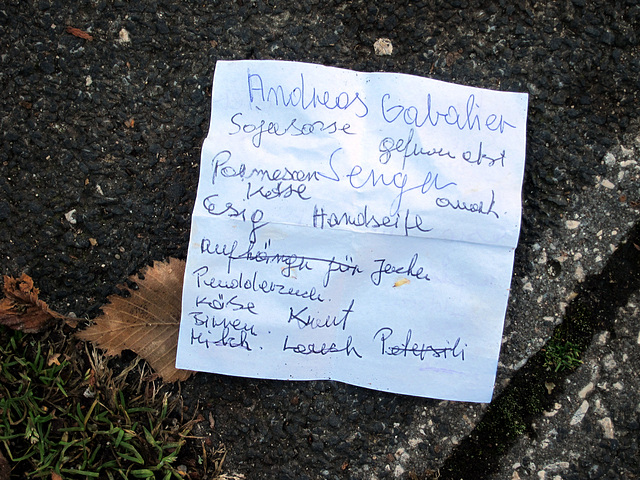 Andreas Gabalier
Sojasosse gefror obst
Parmesan Senga
Käse
Essig Handseife
aufhängr für Jacken
Puddelzuck.
Käse Kraut
Birnen.
Milch. Lauch Petersili